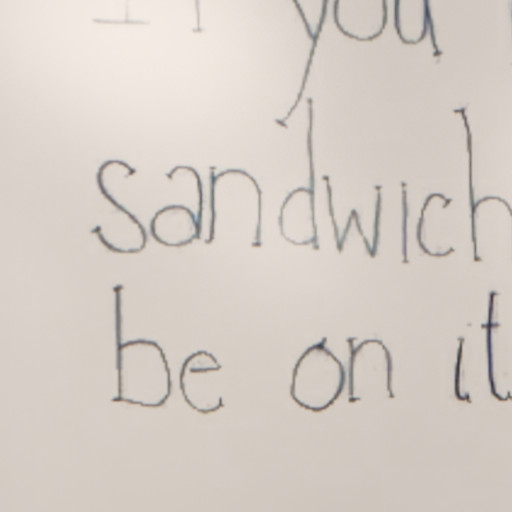 If you
sandwich
be on it